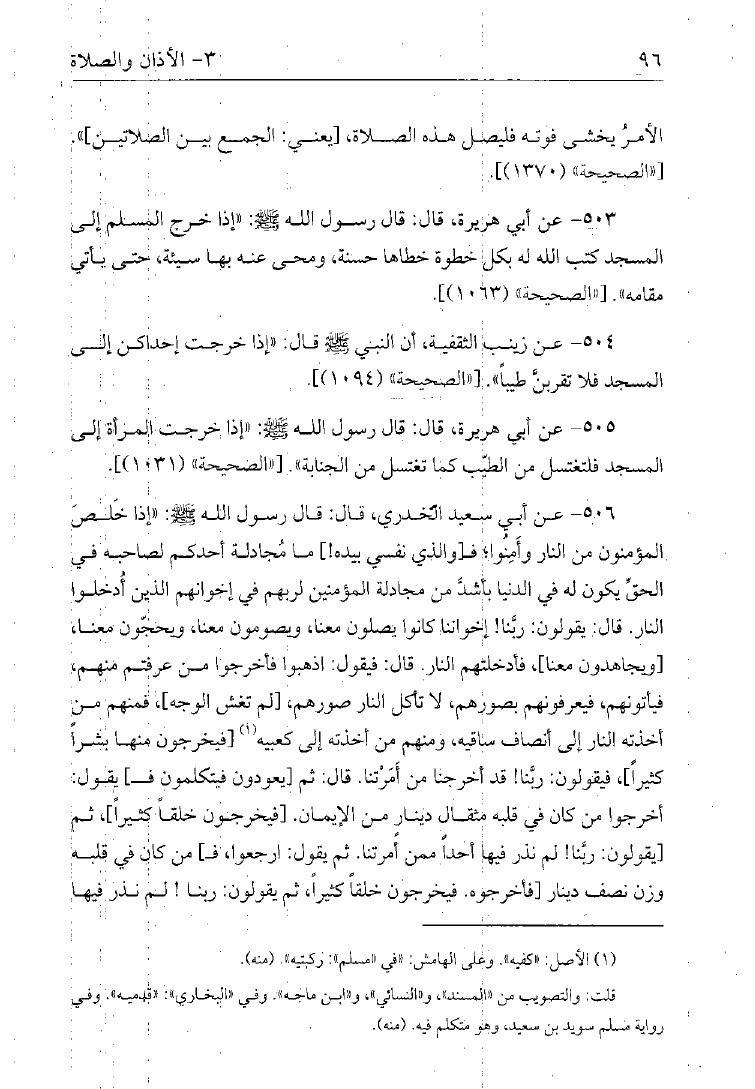 ٩٦
٣- الأذان والصلاة
الأمرُ يخشى فوته فليصل هذه الصلاة، [يعني: الجمع بين الصلاتين]».
[«الصحيحة» (١٣٧٠)].
٥٠٣- عن أبي هريرة، قال: قال رسول الله ﷺ: «إذا خرج المسلم إلى
المسجد كتب الله له بكل خطوة خطاها حسنة، ومحى عنه بها سيئة، حتى يأتي
مقامه». [«الصحيحة» (١٠٦٣)].
٥٠٤- عن زينب الثقفية، أن النبي ﷺ قال: «إذا خرجت إحداكن إلى
المسجد فلا تقربنَّ طيباً». [«الصحيحة» (١٠٩٤)].
٥٠٥- عن أبي هريرة، قال: قال رسول الله ﷺ: «إذا خرجت المرأة إلى
المسجد فلتغتسل من الطيّب كما تغتسل من الجنابة». [«الصحيحة» (١٠٣١)].
٥٠٦- عن أبي سعيد الخدري، قال: قال رسول الله ﷺ: «إذا خَلَصَ
المؤمنون من النار وأَمِنُوا؛ فـ[والذي نفسي بيده!] ما مُجادلة أحدكم لصاحبه في
الحقِّ يكون له في الدنيا بأشدَّ من مجادلة المؤمنين لربهم في إخوانهم الذين أُدخلوا
النار. قال: يقولون: ربَّنا! إخواننا كانوا يصلون معنا، ويصومون معنا، ويحجّون معنا،
[ويجاهدون معنا]، فأدخلتهم النار. قال: فيقول: اذهبوا فأخرجوا من عرفتم منهم،
فيأتونهم، فيعرفونهم بصورهم، لا تأكل النار صورهم، [لم تغش الوجه]، فمنهم من
أخذته النار إلى أنصاف ساقيه، ومنهم من أخذته إلى كعبيه(١) [فيخرجون منها بشراً
كثيراً]، فيقولون: ربَّنا! قد أخرجنا من أَمَرْتنا. قال: ثم [يعودون فيتكلمون فـ] يقول:
أخرجوا من كان في قلبه مثقال دينار من الإيمان. [فيخرجون خلقاً كثيراً]، ثم
[يقولون: ربَّنا! لم نذر فيها أحداً ممن أمرتنا. ثم يقول: ارجعوا، فـ] من كان في قلبه
وزن نصف دينار [فأخرجوه. فيخرجون خلقاً كثيراً، ثم يقولون: ربنا ! لم نذر فيها
(١) الأصل: «كفيه». وعلى الهامش: «في «مسلم»: ركبتيه». (منه).
قلت: والتصويب من «المسند»، و«النسائي»، و«ابن ماجه». وفي «البخاري»: «قدميه». وفي
رواية مسلم سويد بن سعيد، وهو متكلم فيه. (منه).